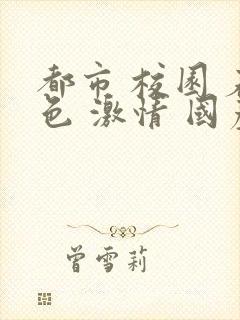 都市 校園
色 激情 國
曾雪莉